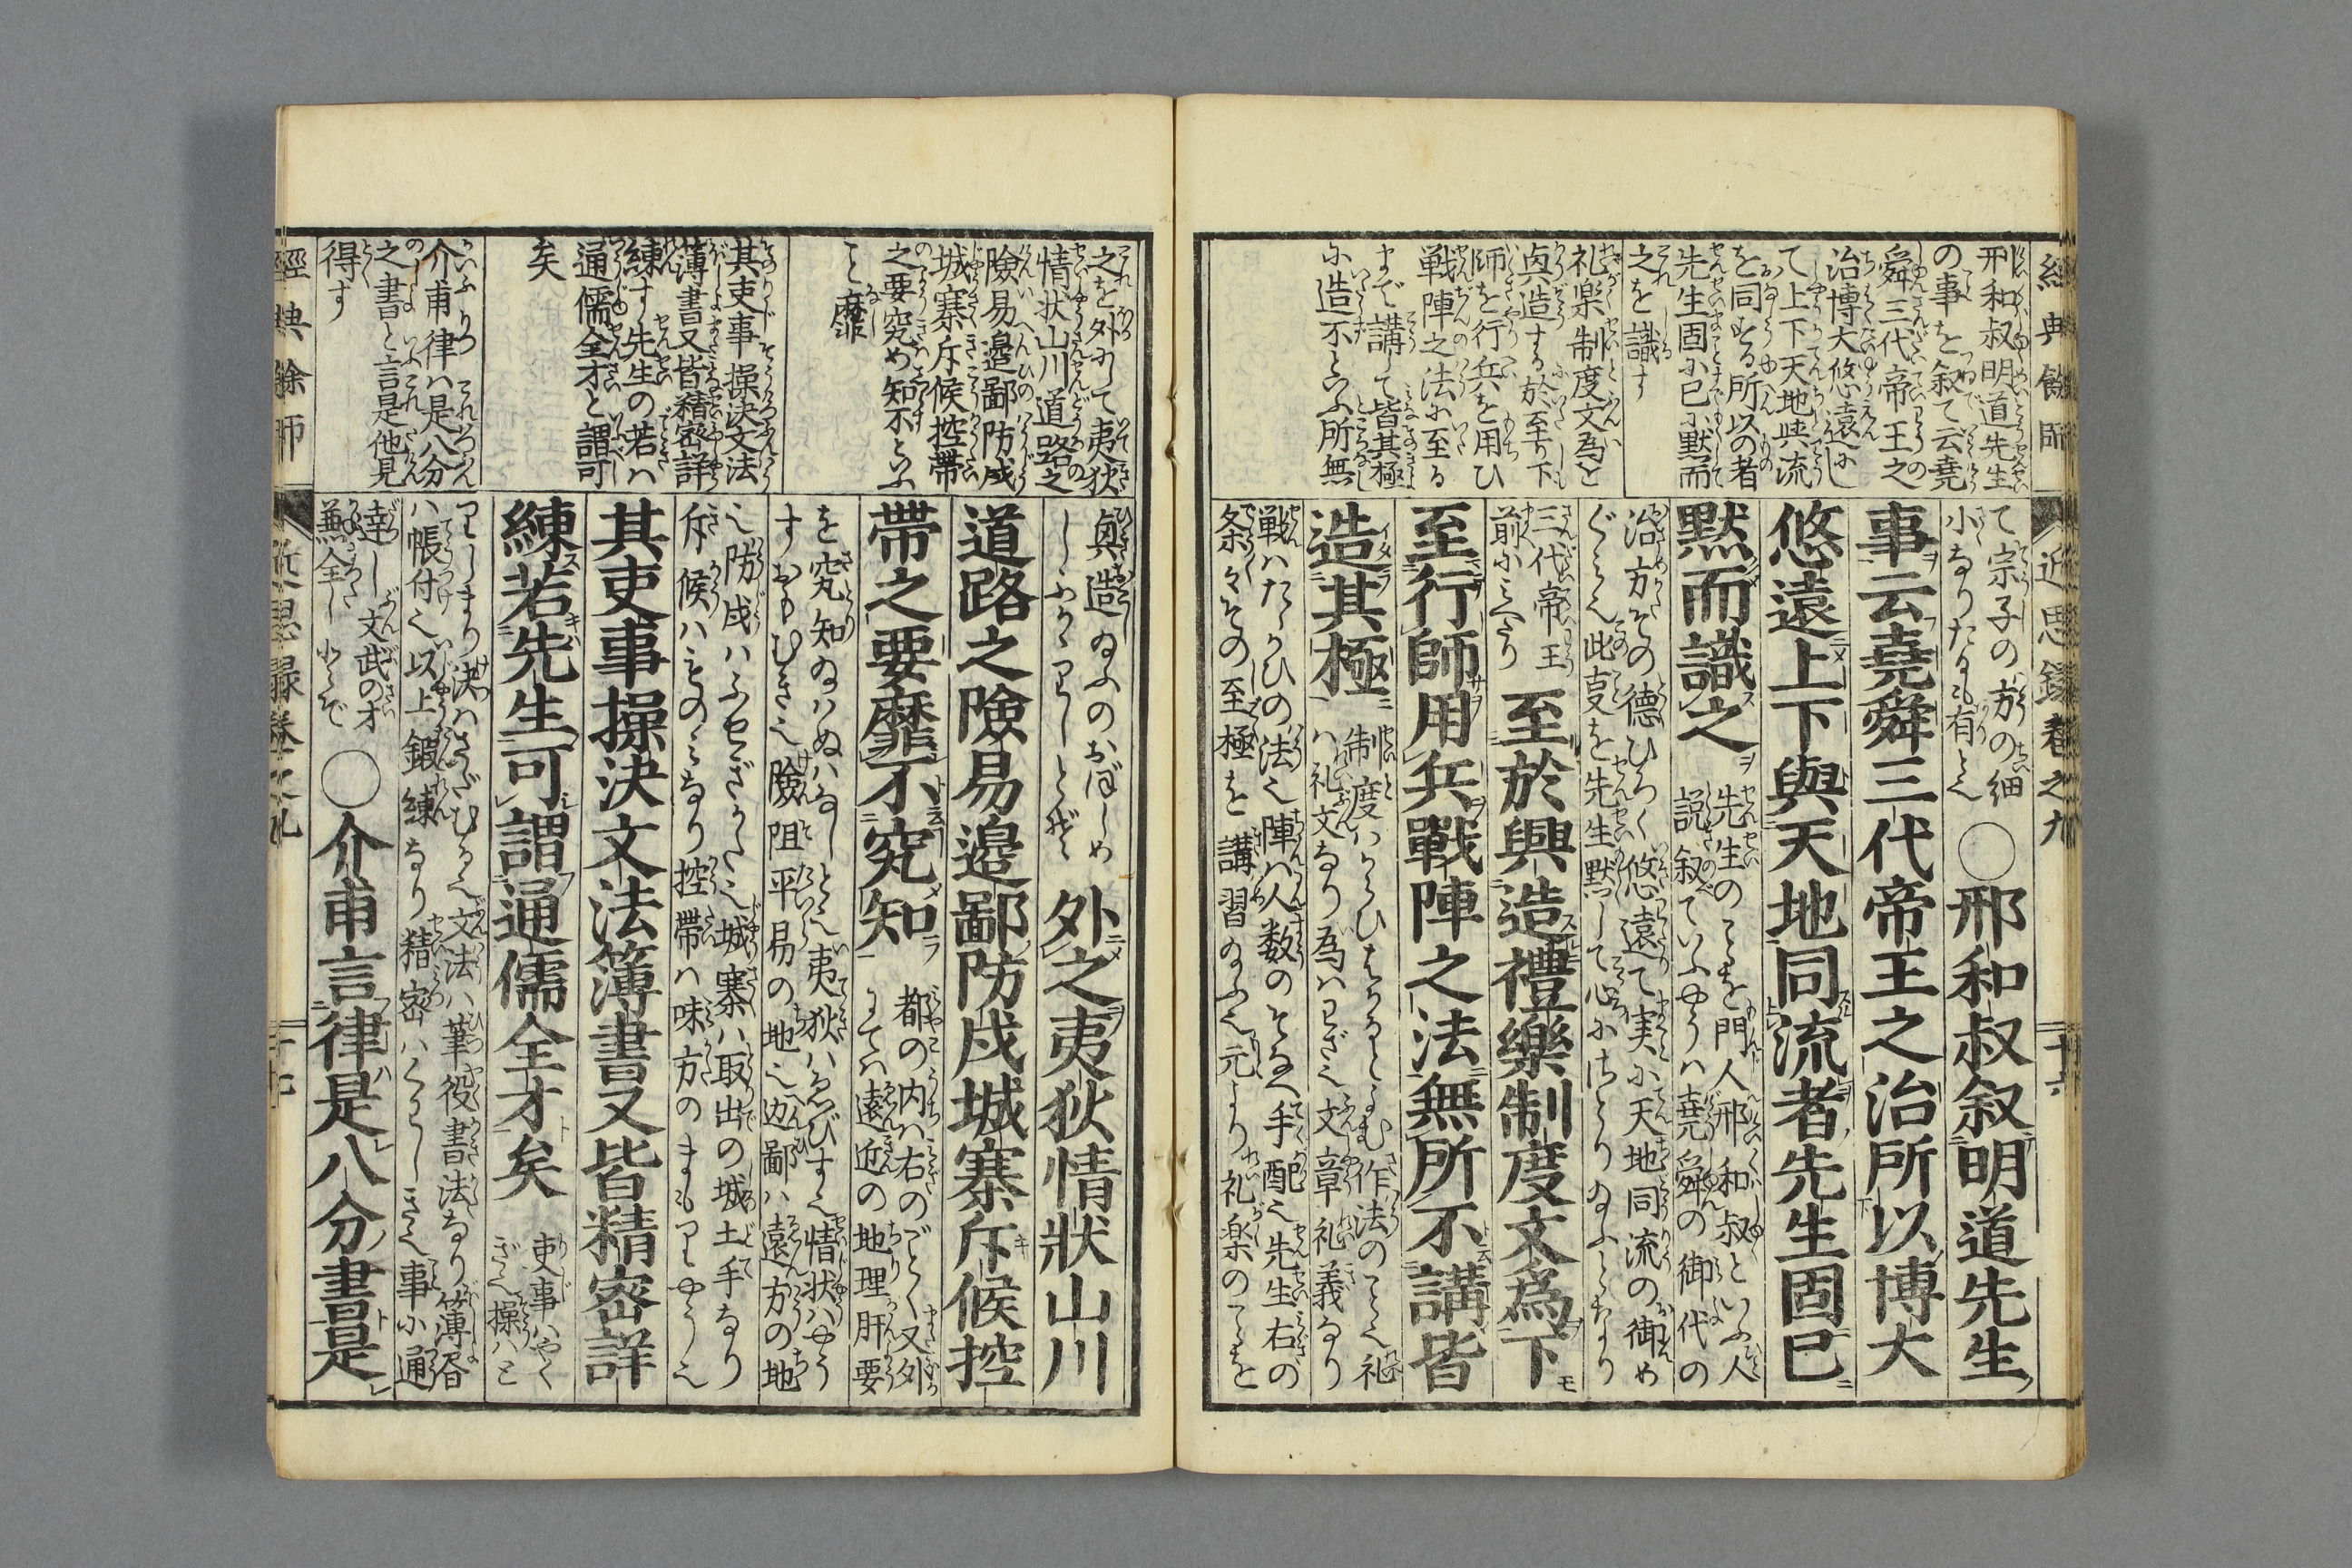 經典餘師
近思錄卷之九
二十六
刑和叔明道先生
の事を叙て云堯
舜三代帝王之
治博大悠遠にし
て上下天地与流
を同する所以の者
先生固に已に默而
之を識す
礼楽制度文為と
真造する於至り下
師を行兵を用ひ
戦陣之法に至る
まで講て皆其極
に造不といふ所無
て宗子の方の細
小なりたるも有と也
○邢和叔叙明道先生
事云堯舜三代帝王之治所以博大
悠遠上下與天地同流者先生固已
默而識之
先生のことを門人邢和叔といふ人
説叙ていふやうハ堯舜の御代の
治方その德ひろく悠遠て実に天地同流の御め
ぐミ也此㕝を先生默して心にさとりゐふとなり
三代帝王
前にミへたり
至於興造禮樂制度文為下
至行師用兵戰陣之法無所不講皆
造其極
制度ハからひはかるとよむ作法のこと也礼
ハ礼文なり為ハわざ也文章礼義なり
戦ハたゝかひの法也陣ハ人数のそなへ手配也先生右の
条々その至極を講習ゐふ也元より礼楽のことを
之を外にて夷狄
情状山川道路之
險易邊鄙防戍
城寨斥候控帶
之要究め知不といふ
こと靡
其吏事操決文法
薄書又皆精密詳
練す先生の若ハ
通儒全才と謂可
矣
介甫律ハ是八分
之書と言是他見
得す
真造ゐふのおぼしめ
外之夷狄情狀山川
道路之險易邊鄙防戍城寨斥候控
帶之要靡不究知
都の内ハ右のごとく又外
にてハ遠近の地理肝要
を究知ゐハぬハなしとと也夷狄ハゑびす也情状ハやう
すおもむき也險阻平易の地也边鄙ハ遠方の地
也防戍ハふせぎかた也城寨ハ取出の城土手なり
斥候ハものミなり控帶ハ味方のまもりやう也
其吏事操決文法簿書又皆精密詳
練若先生可謂通儒全才矣
吏事ハやく
ぎ也操ハと
りしまり決ハさだむる也文法ハ筆役書法なり簿書
ハ帳付也以上鍛練なり精密ハくわしき也事に通
達し文武の才
○介甫言律是八分書是
經典餘師
近思錄卷之九
二十七